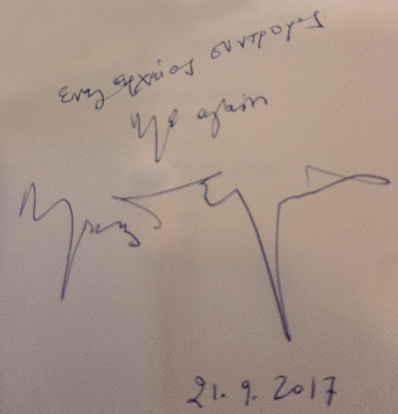 ένας αρχαίος σύντροφος
Με αγάπη
21.9.2017